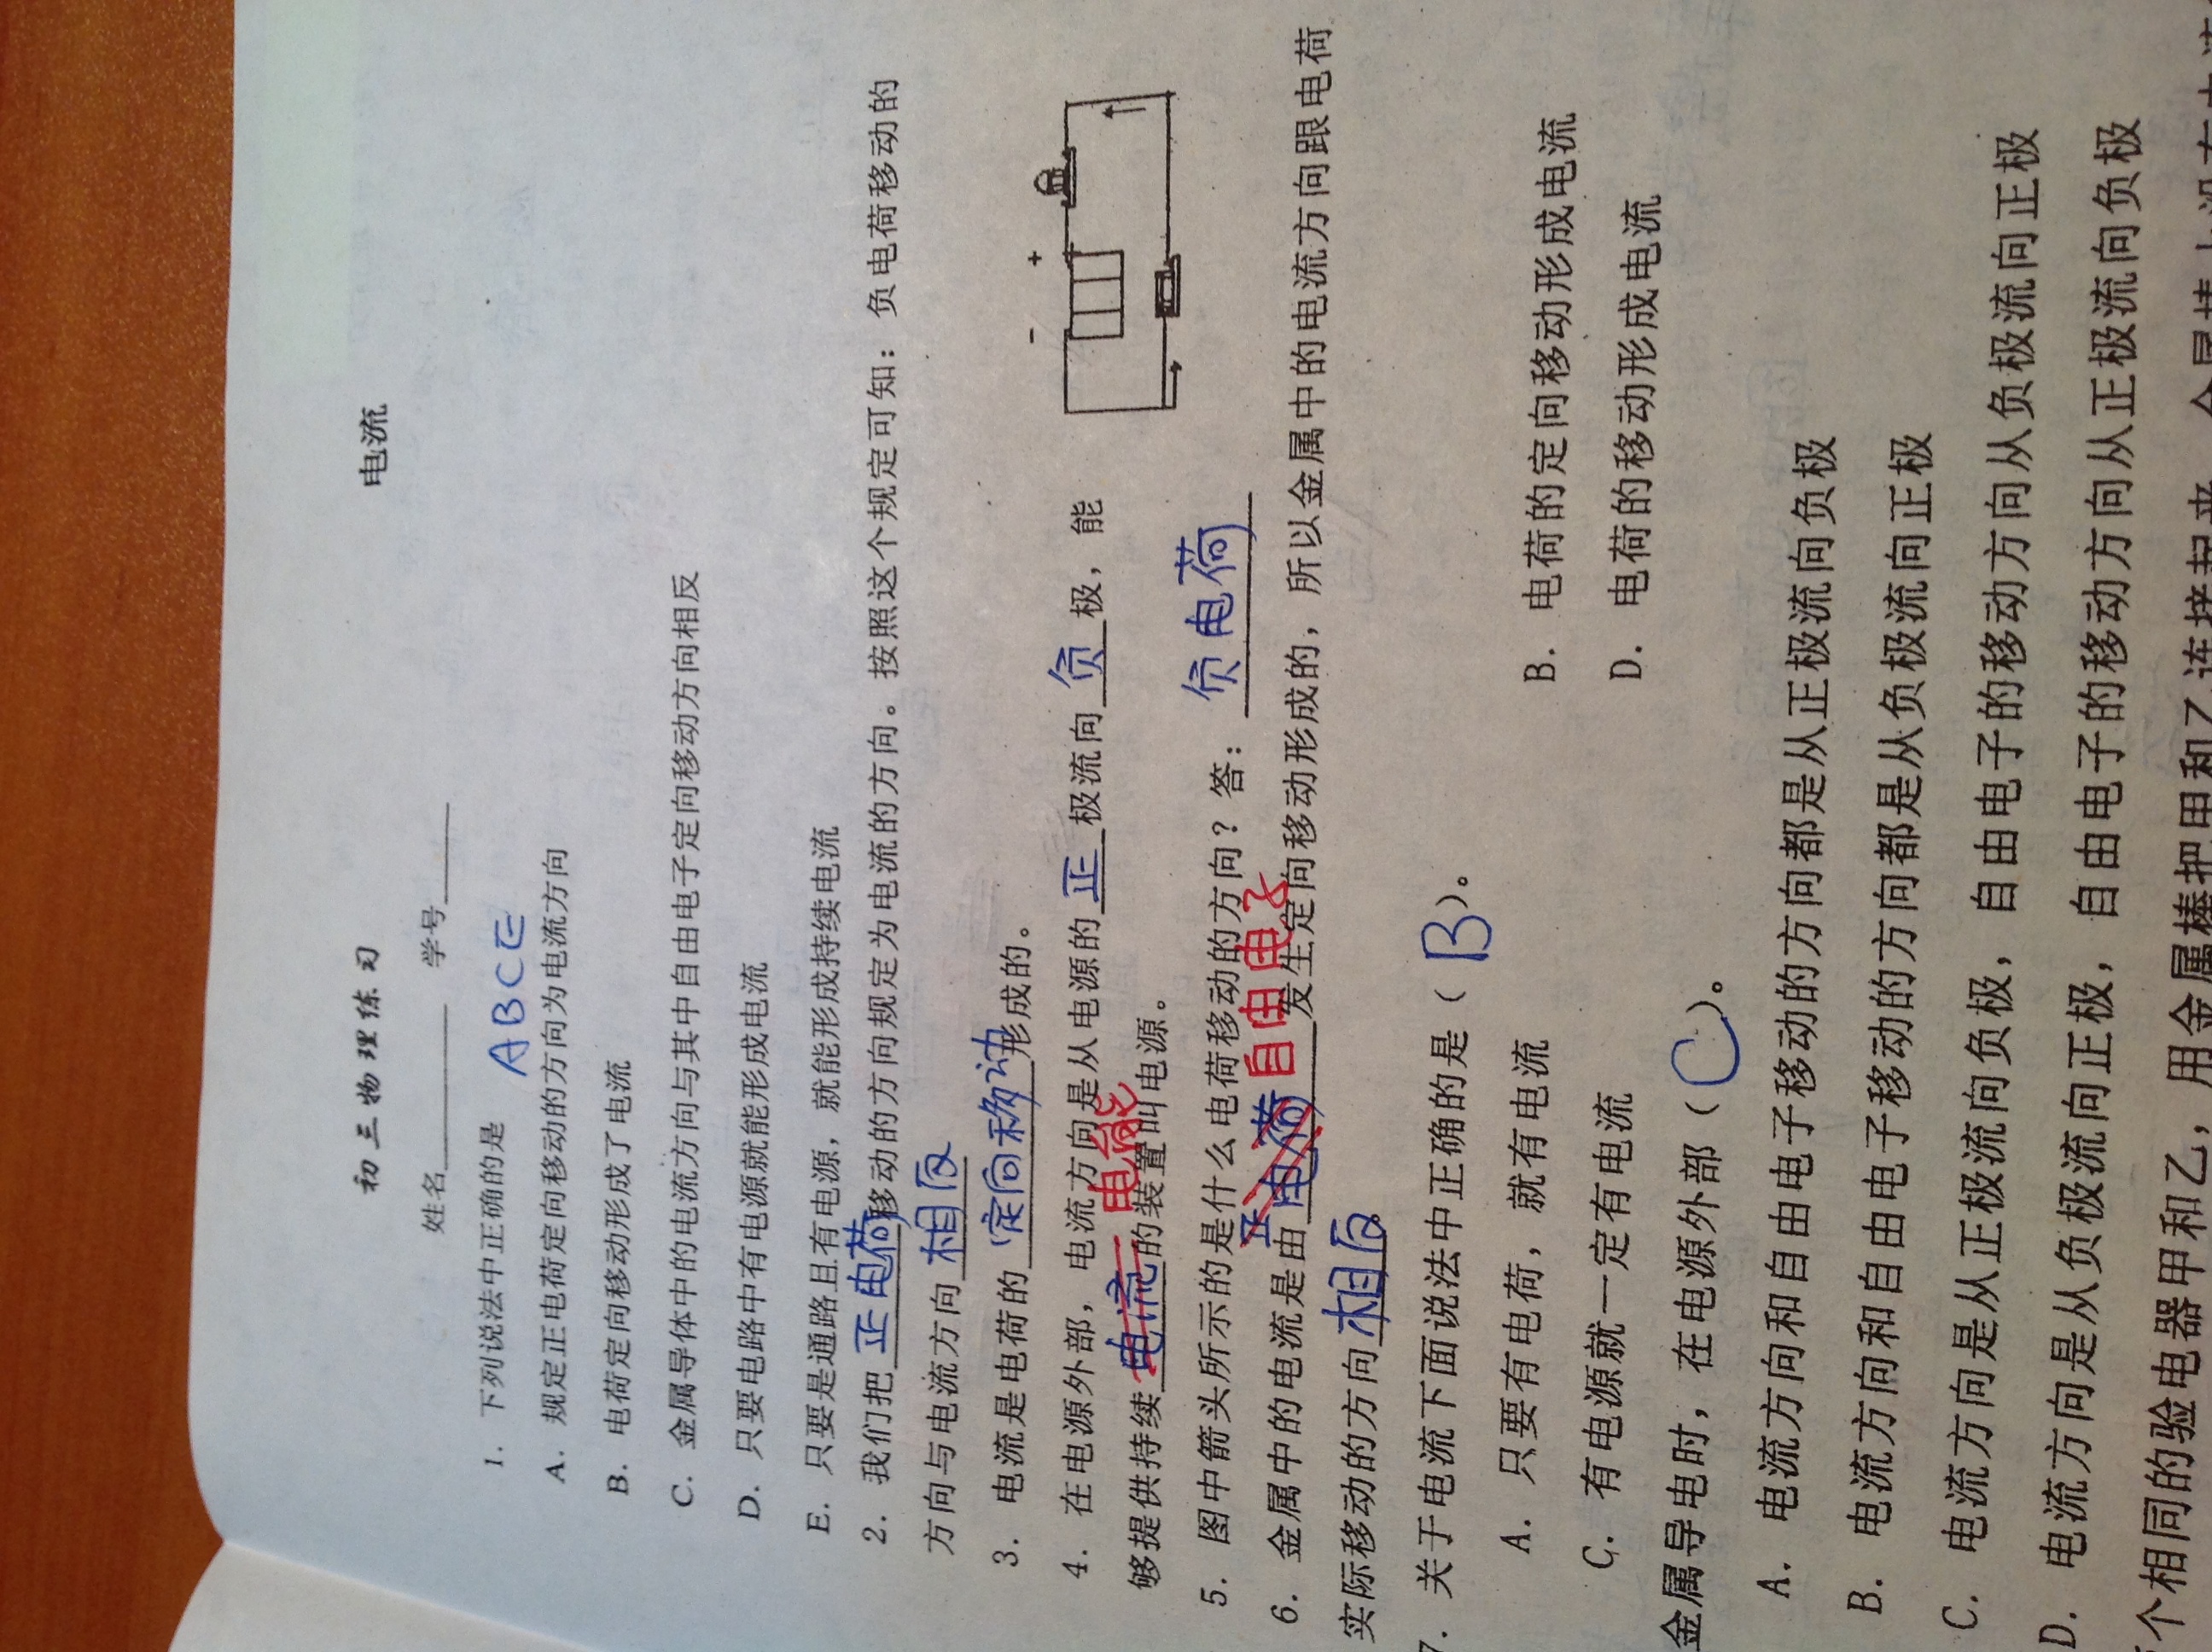 初三物理练习 电流
姓名 学号
1. 下列说法中正确的是 ABCE
A. 规定正电荷定向移动的方向为电流方向
B. 电荷定向移动形成了电流
C. 金属导体中的电流方向与其中自由电子定向移动方向相反
D. 只要电路中有电源就能形成电流
E. 只要是通路且有电源，就能形成持续电流
2. 我们把正电荷移动的方向规定为电流的方向。按照这个规定可知：负电荷移动的
方向与电流方向相反
3. 电流是电荷的定向移动形成的。
- +
4. 在电源外部，电流方向是从电源的正极流向负极，能
够提供持续电流电能的装置叫电源。
5. 图中箭头所示的是什么电荷移动的方向？答：负电荷
6. 金属中的电流是由正电荷自由电子发生定向移动形成的，所以金属中的电流方向跟电荷
实际移动的方向相反。
7. 关于电流下面说法中正确的是（B）。
A. 只要有电荷，就有电流 B. 电荷的定向移动形成电流
C. 有电源就一定有电流 D. 电荷的移动形成电流
金属导电时，在电源外部（C）。
A. 电流方向和自由电子移动的方向都是从正极流向负极
B. 电流方向和自由电子移动的方向都是从负极流向正极
C. 电流方向是从正极流向负极，自由电子的移动方向从负极流向正极
D. 电流方向是从负极流向正极，自由电子的移动方向从正极流向负极
个相同的验电器甲和乙，用金属棒把甲和乙连接起来，金属棒上没有